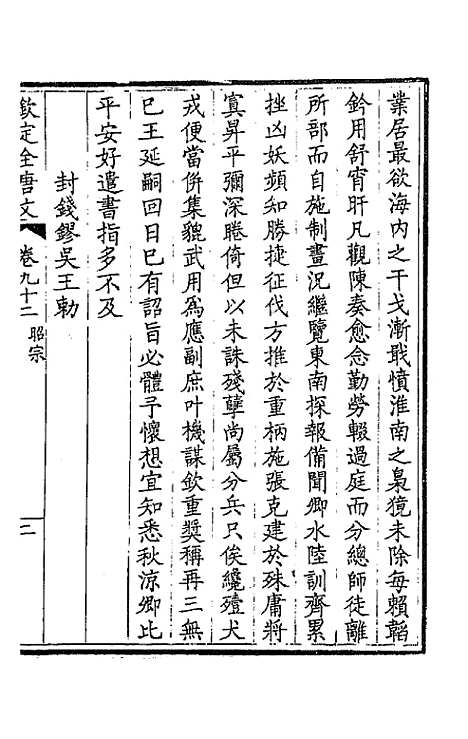 業居最欲海内之干戈漸戢憤淮南之梟獍未除每賴韜
鈐用舒宵旰凡觀陳奏愈念勤勞輟過庭而分總師徒離
所部而自施制畫況繼覽東南探報備聞卿水陸訓齊累
挫凶妖頻知勝捷征伐方推於重柄施張克建於殊庸將
寘昇平彌深睠倚但以未誅殘孽尚屬分兵只俟纔殪犬
戎便當併集貔武用爲應副庶叶機謀欽重奬稱再三無
已王延嗣回日已有詔旨必體予懷想宜知悉秋涼卿比
平安好遣書指多不及
封錢鏐吳王勅
欽定全唐文
卷九十二
昭宗
二